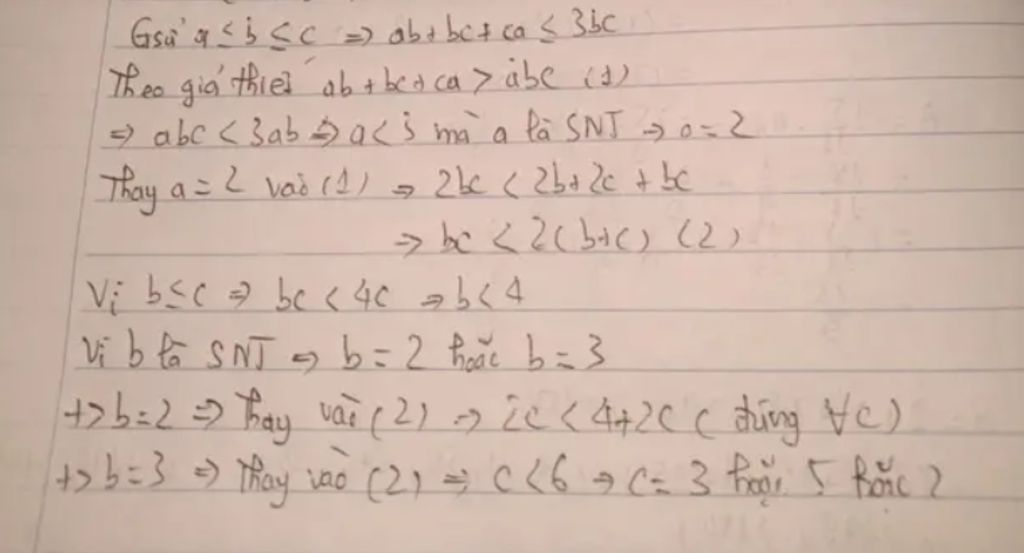 Gsử a ≤ b ≤ c => ab + bc + ca ≤ 3bc
Theo giả thiết ab + bc + ca > abc (1)
=> abc < 3ab => a < 3 mà a là SNT -> a = 2
Thay a = 2 vào (1) => 2bc < 2b + 2c + bc
=> bc < 2(b+c) (2)
Vì b ≤ c => bc < 4c => b < 4
Vì b là SNT => b = 2 hoặc b = 3
+> b = 2 => Thay vào (2) -> 2c < 4 + 2c ( đúng ∀c)
+> b = 3 => Thay vào (2) => c < 6 -> c = 3 hoặc 5 hoặc 2